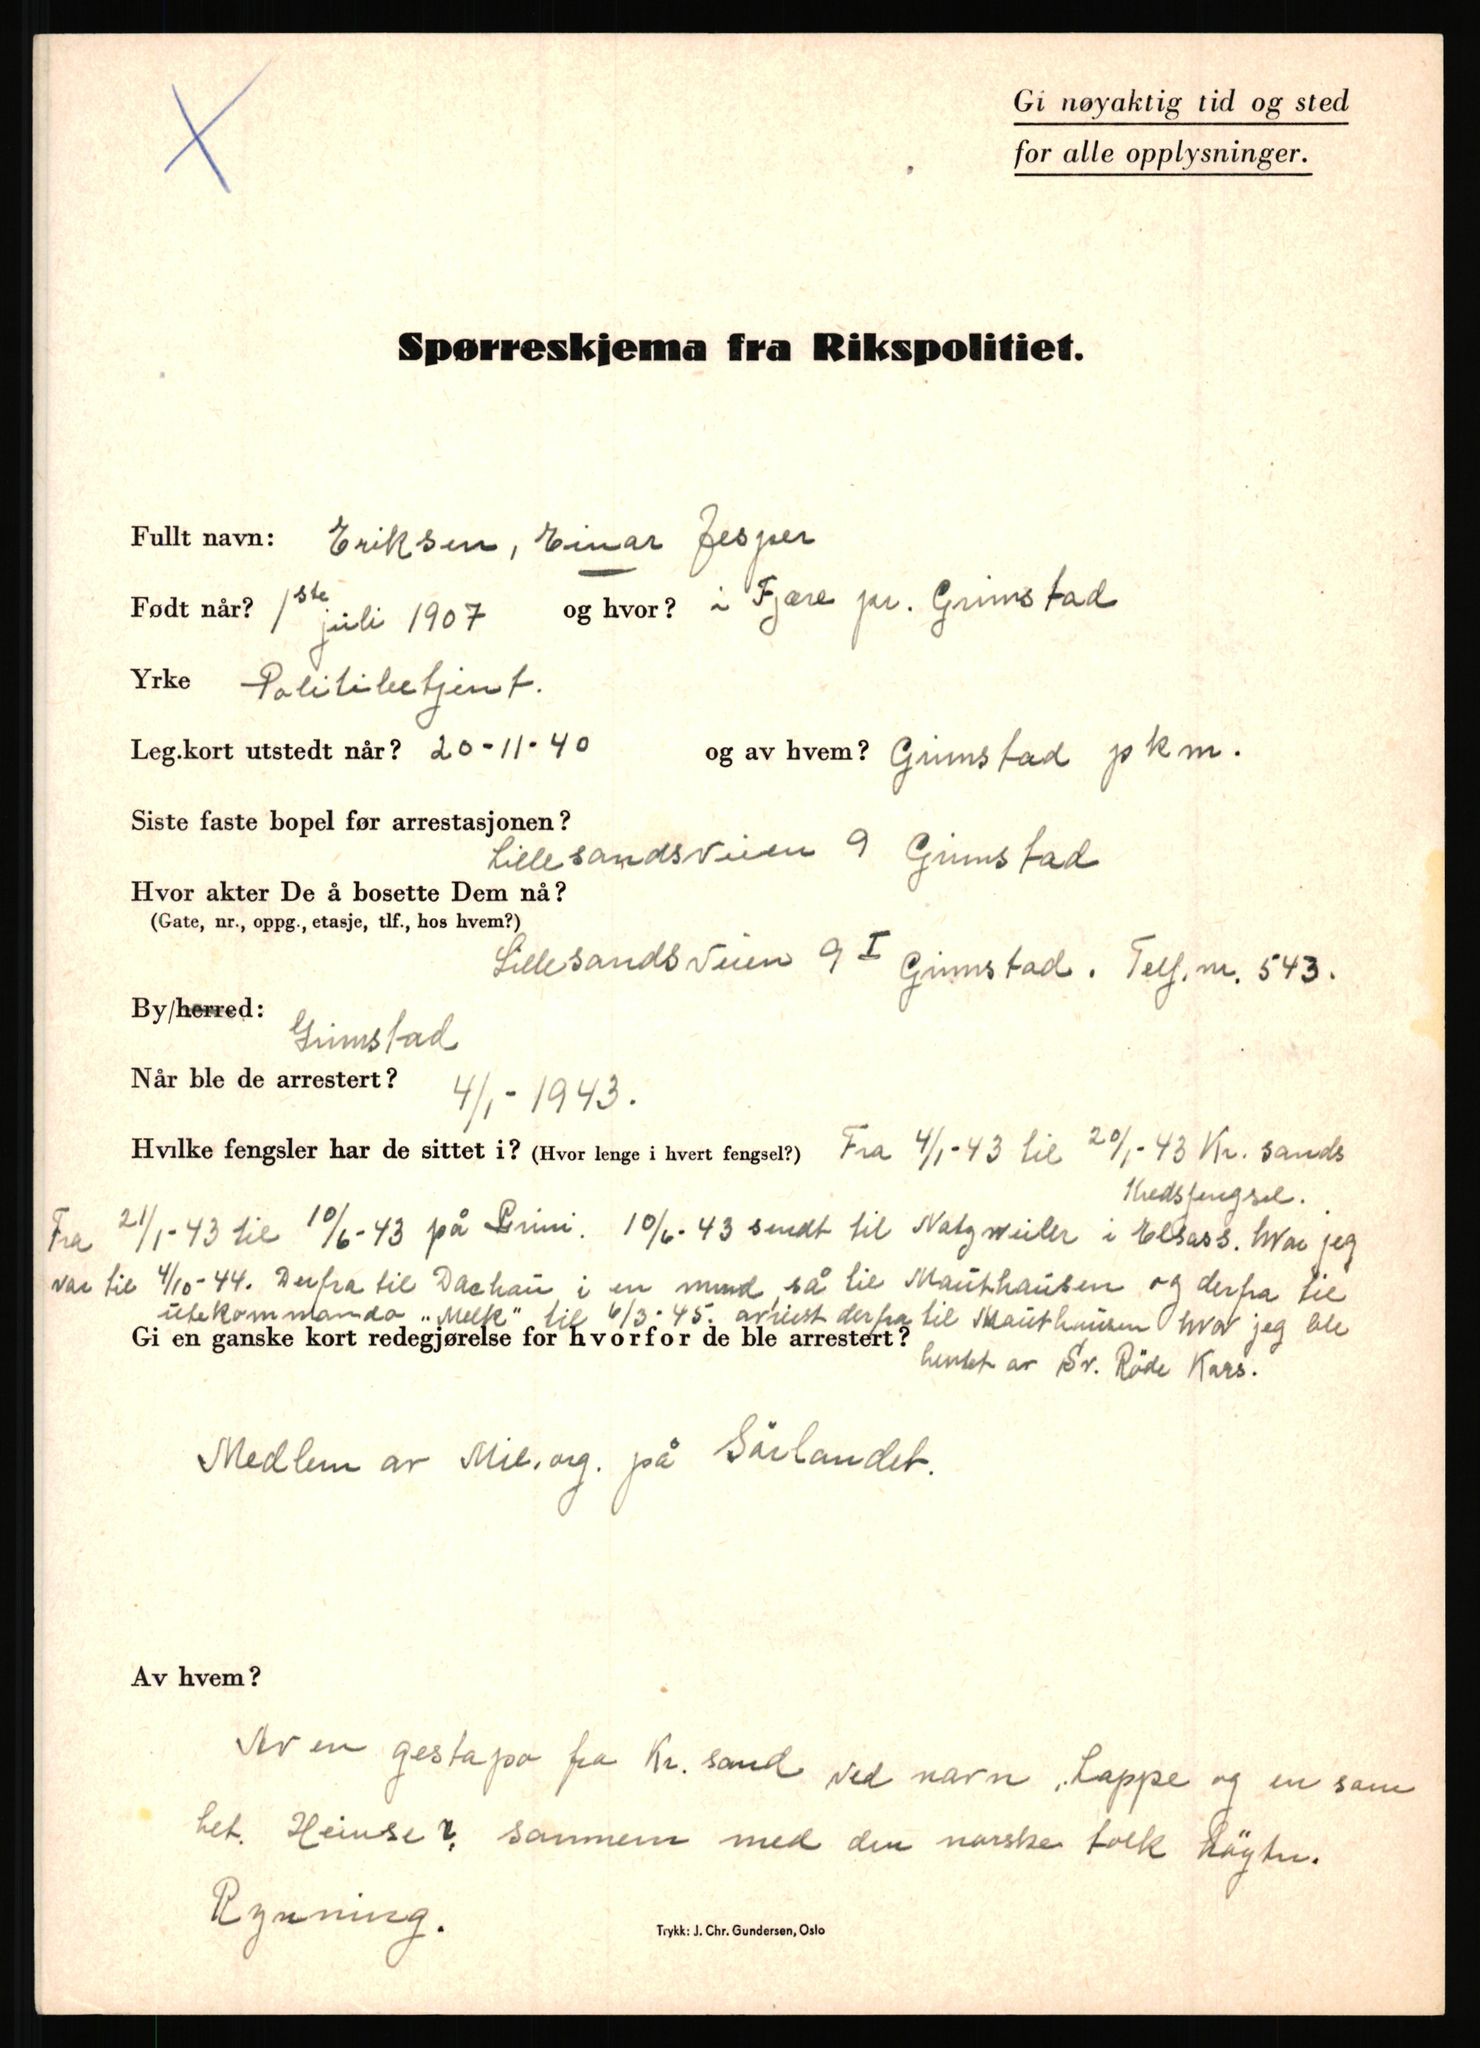 Gi nøyaktig tid og sted
for alle opplysninger.
Spørreskjema fra Rikspolitiet.
Fullt navn: Eriksen, Einar Jesper
Født når? 1ste juli 1907 og hvor? i Fjære pr. Grimstad
Yrke Politibetjent.
Leg.kort utstedt når? 20-11-40 og av hvem? Grimstad pkm.
Siste faste bopel før arrestasjonen?
Lillesandsveien 9 Grimstad
Hvor akter De å bosette Dem nå?
(Gate, nr., oppg., etasje, tlf., hos hvem?)
Lillesandsveien 9 I Grimstad. Telf. nr. 543.
By/herred:
Grimstad
Når ble de arrestert? 4/1-1943.
Hvilke fengsler har de sittet i? (Hvor lenge i hvert fengsel?) Fra 4/1-43 til 20/1-43 Kr. sands
Kredsfengsel.
Fra 21/1-43 til 10/6-43 på Grini. 10/6-43 sendt til Natzweiler i Elsass. hvor jeg
var til 4/10-44. Derfra til Dachau i en mnd, så til Mauthausen og derfra til
utekommando "Melk" til 6/3-45. avreist derfra til Mauthausen hvor jeg ble
Gi en ganske kort redegjørelse for hvorfor de ble arrestert?
hentet av Sv. Röde Kors.
Medlem av Mil.org. på Sörlandet.
Av hvem?
Av en gestapo fra Kr. sand ved navn Lappe og en som
het. Heinse? sammen med den norske tolk
Rynning.
Trykk: J. Chr. Gundersen, Oslo